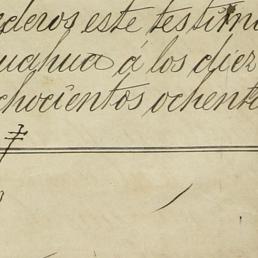 ederos este testimo
uahua á los diez
chocientos ochenta